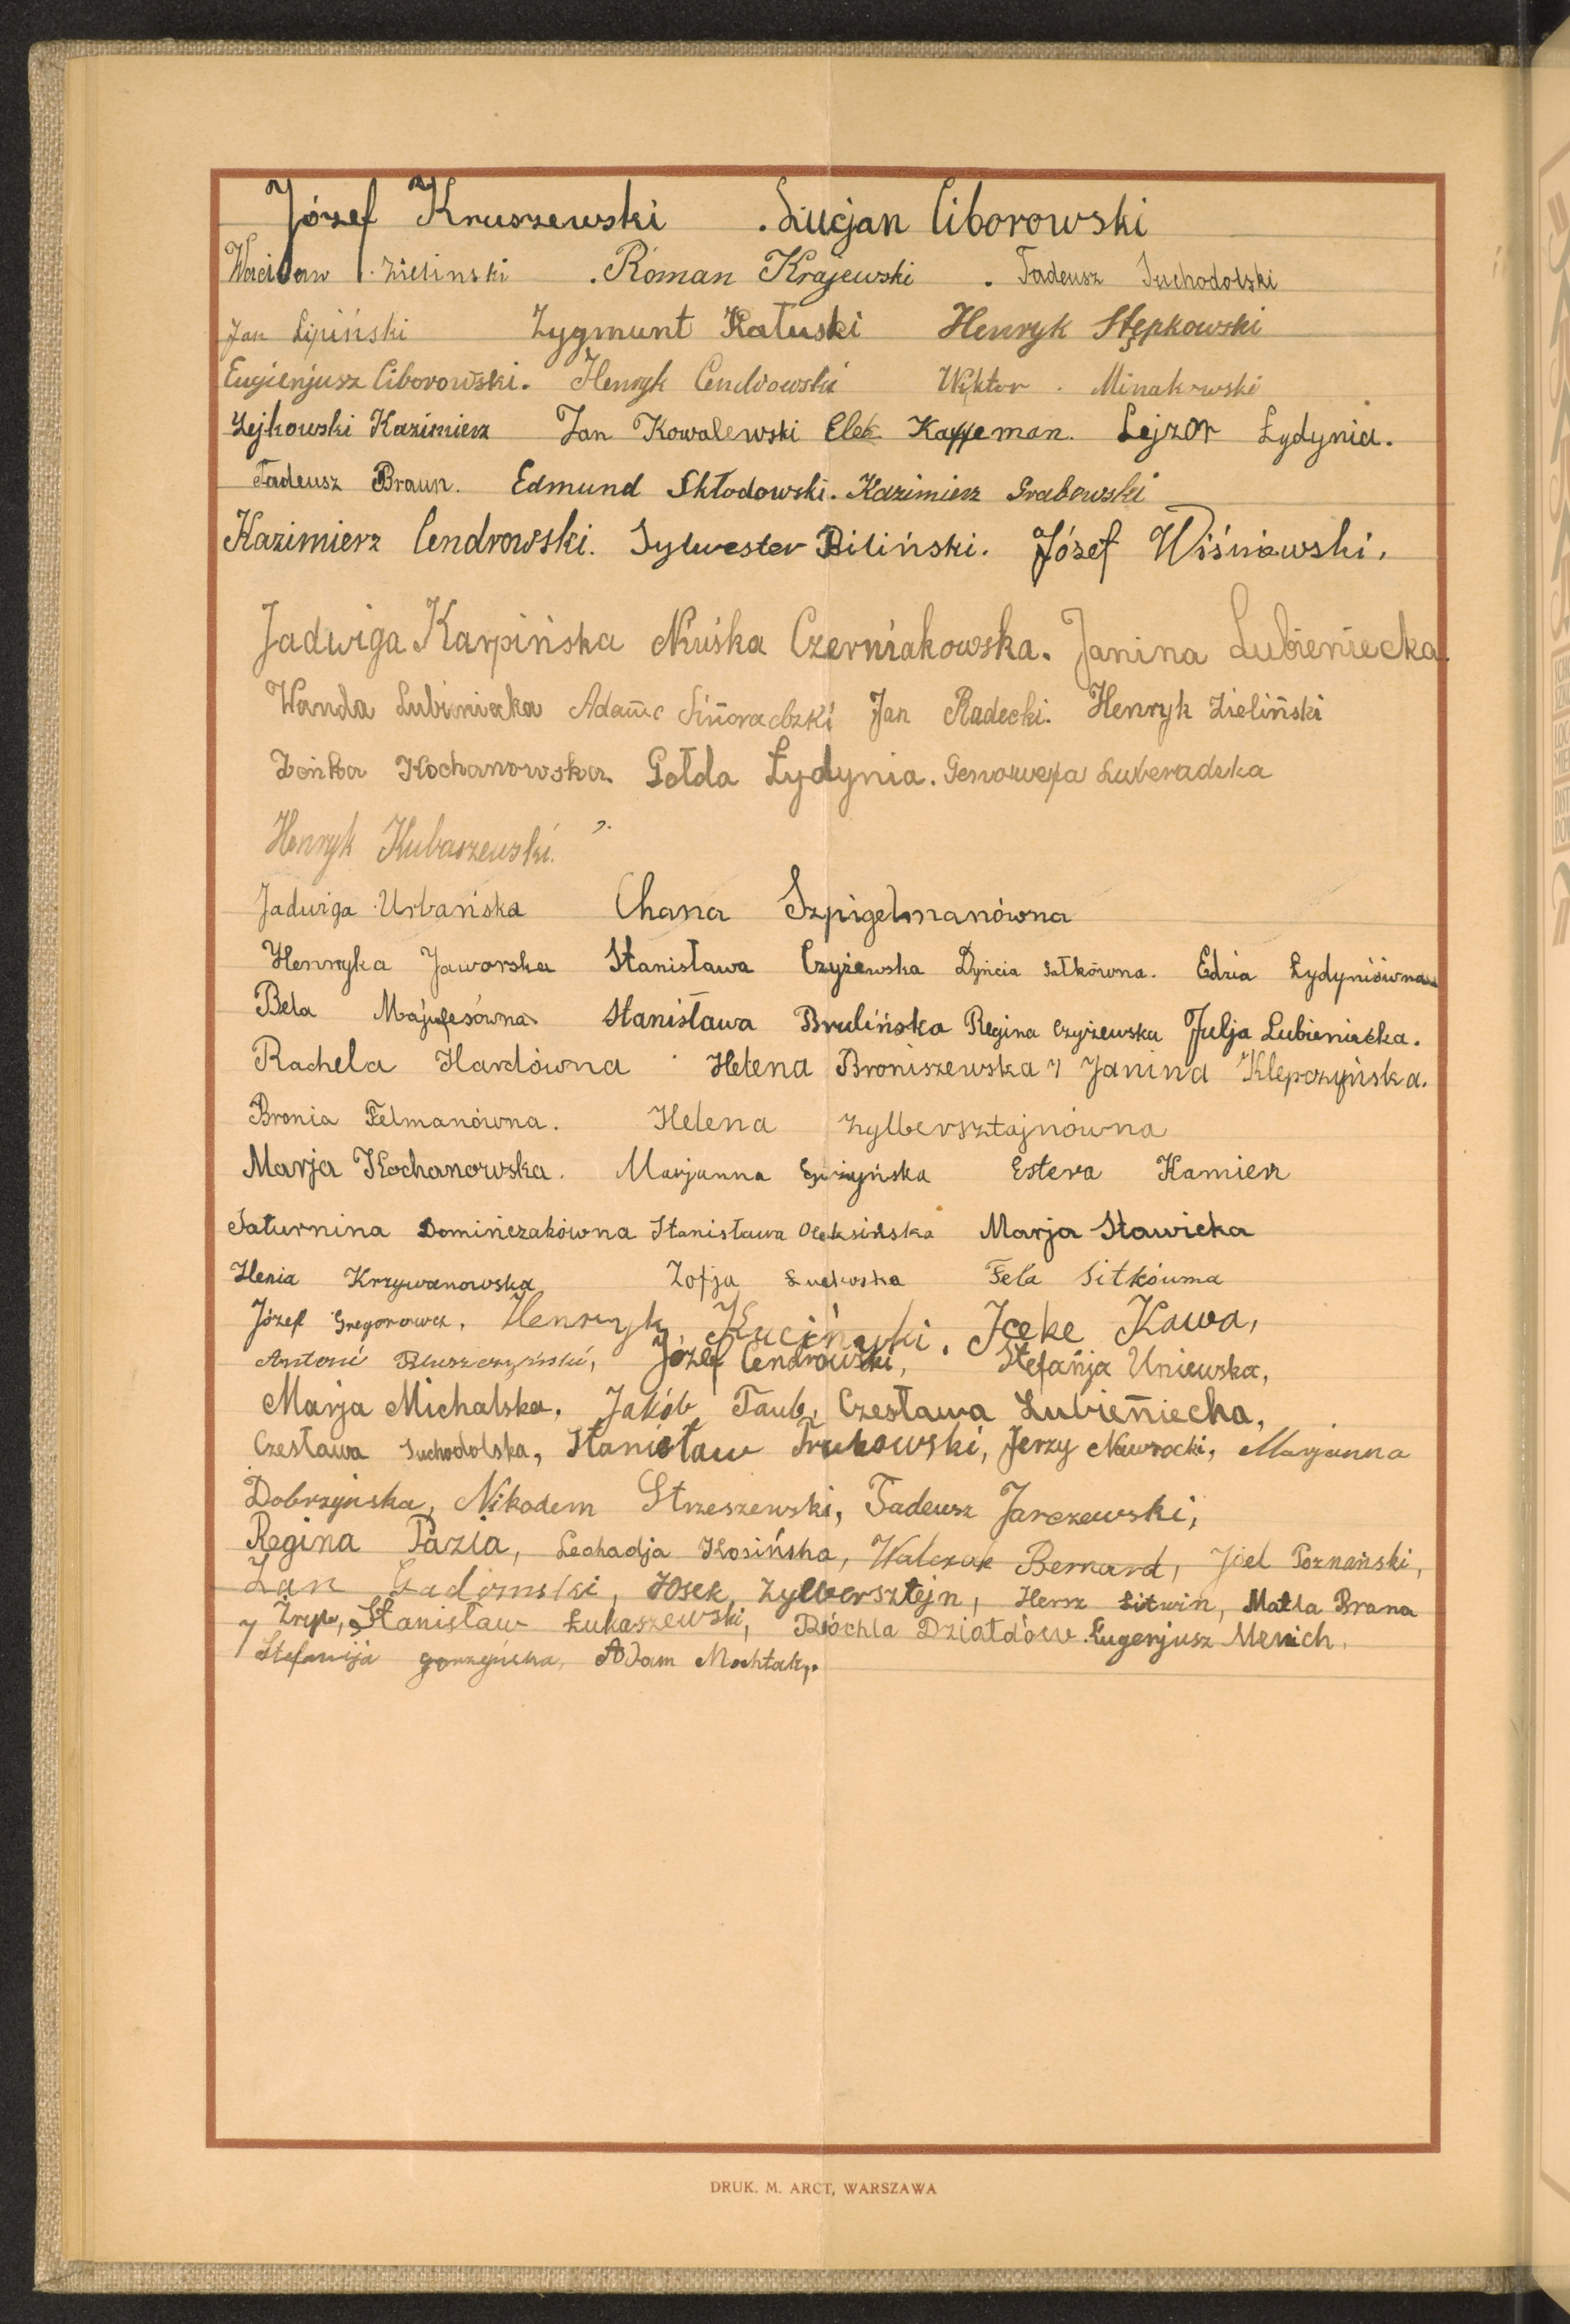 Józef Kruszewski . Lucjan Ciborowski
Wacław Zieliński . Roman Krajewski . Tadeusz Suchodolski
Jan Lipiński Zygmunt Kałuski Henryk Stępkowski
Eugienjusz Ciborowski. Henryk Cendrowski Wiktor . Minakowski
Zejkowski Kazimierz Jan Kowalewski Elek Lejzor Łydynia.
Tadeusz Braun. Edmund Skłodowski. Kazimierz Grabowski
Kazimierz Cendrowski. Sylwester Biliński. Józef Wiśniewski.
Jadwiga Karpińska Niuśka Czerniakowska. Janina Lubieniecka.
Wanda Lubieniecka Jan Radecki. Henryk Zieliński
Żeńka Kochanowska. Gołda Łydynia. Genowefa Luberadzka
Henryk Kubaszewski.
Jadwiga Urbańska Chana Szpigelmanówna
Henryka Jaworska Stanisława Czyżewska Dyńcia Sałkówna. Edzia Łydyniówna
Bela Majufesówna Stanisława Brulińska Regina Czyżewska Julja Lubieniecka.
Rachela Hardówna Helena Broniszewska Janina Klepczyńska.
Bronia Felmanówna. Helena Zylbersztajnówna
Marja Kochanowska. Marjanna Estera Kamierz
Saturnina Domińczakówna Stanisława Oleksińska Marja Sławicka
Henia Krzywanowska Zofja Łuckoska Fela Sitkówna
Józef Gregorowicz, Henryk Kuciński. Iceke Kawa,
Antoni Pluszczyński, Józef Cendrowski, Stefańja Uniewska,
Marja Michalska, Jakób Taub, Czesława Lubieniecka,
Czesława Suchodolska, Stanisław Trukowski, Jerzy Nawrocki, Marjanna
Dobrzyńska, Nikodem Strzeszewski, Tadeusz Jarczewski,
Regina Pazia, Leokadja Kosińska, Walczak Bernard, Joel Poznański,
Jan Gadomski, Josek Zylbersztejn, Hersz Litwin, Matla Brana
Stanisław Łukaszewski, Róchla Działdów. Eugenjusz Menich,
Stefanija Gorzyńska, Adam Mochtak.
DRUK. M. ARCT, WARSZAWA